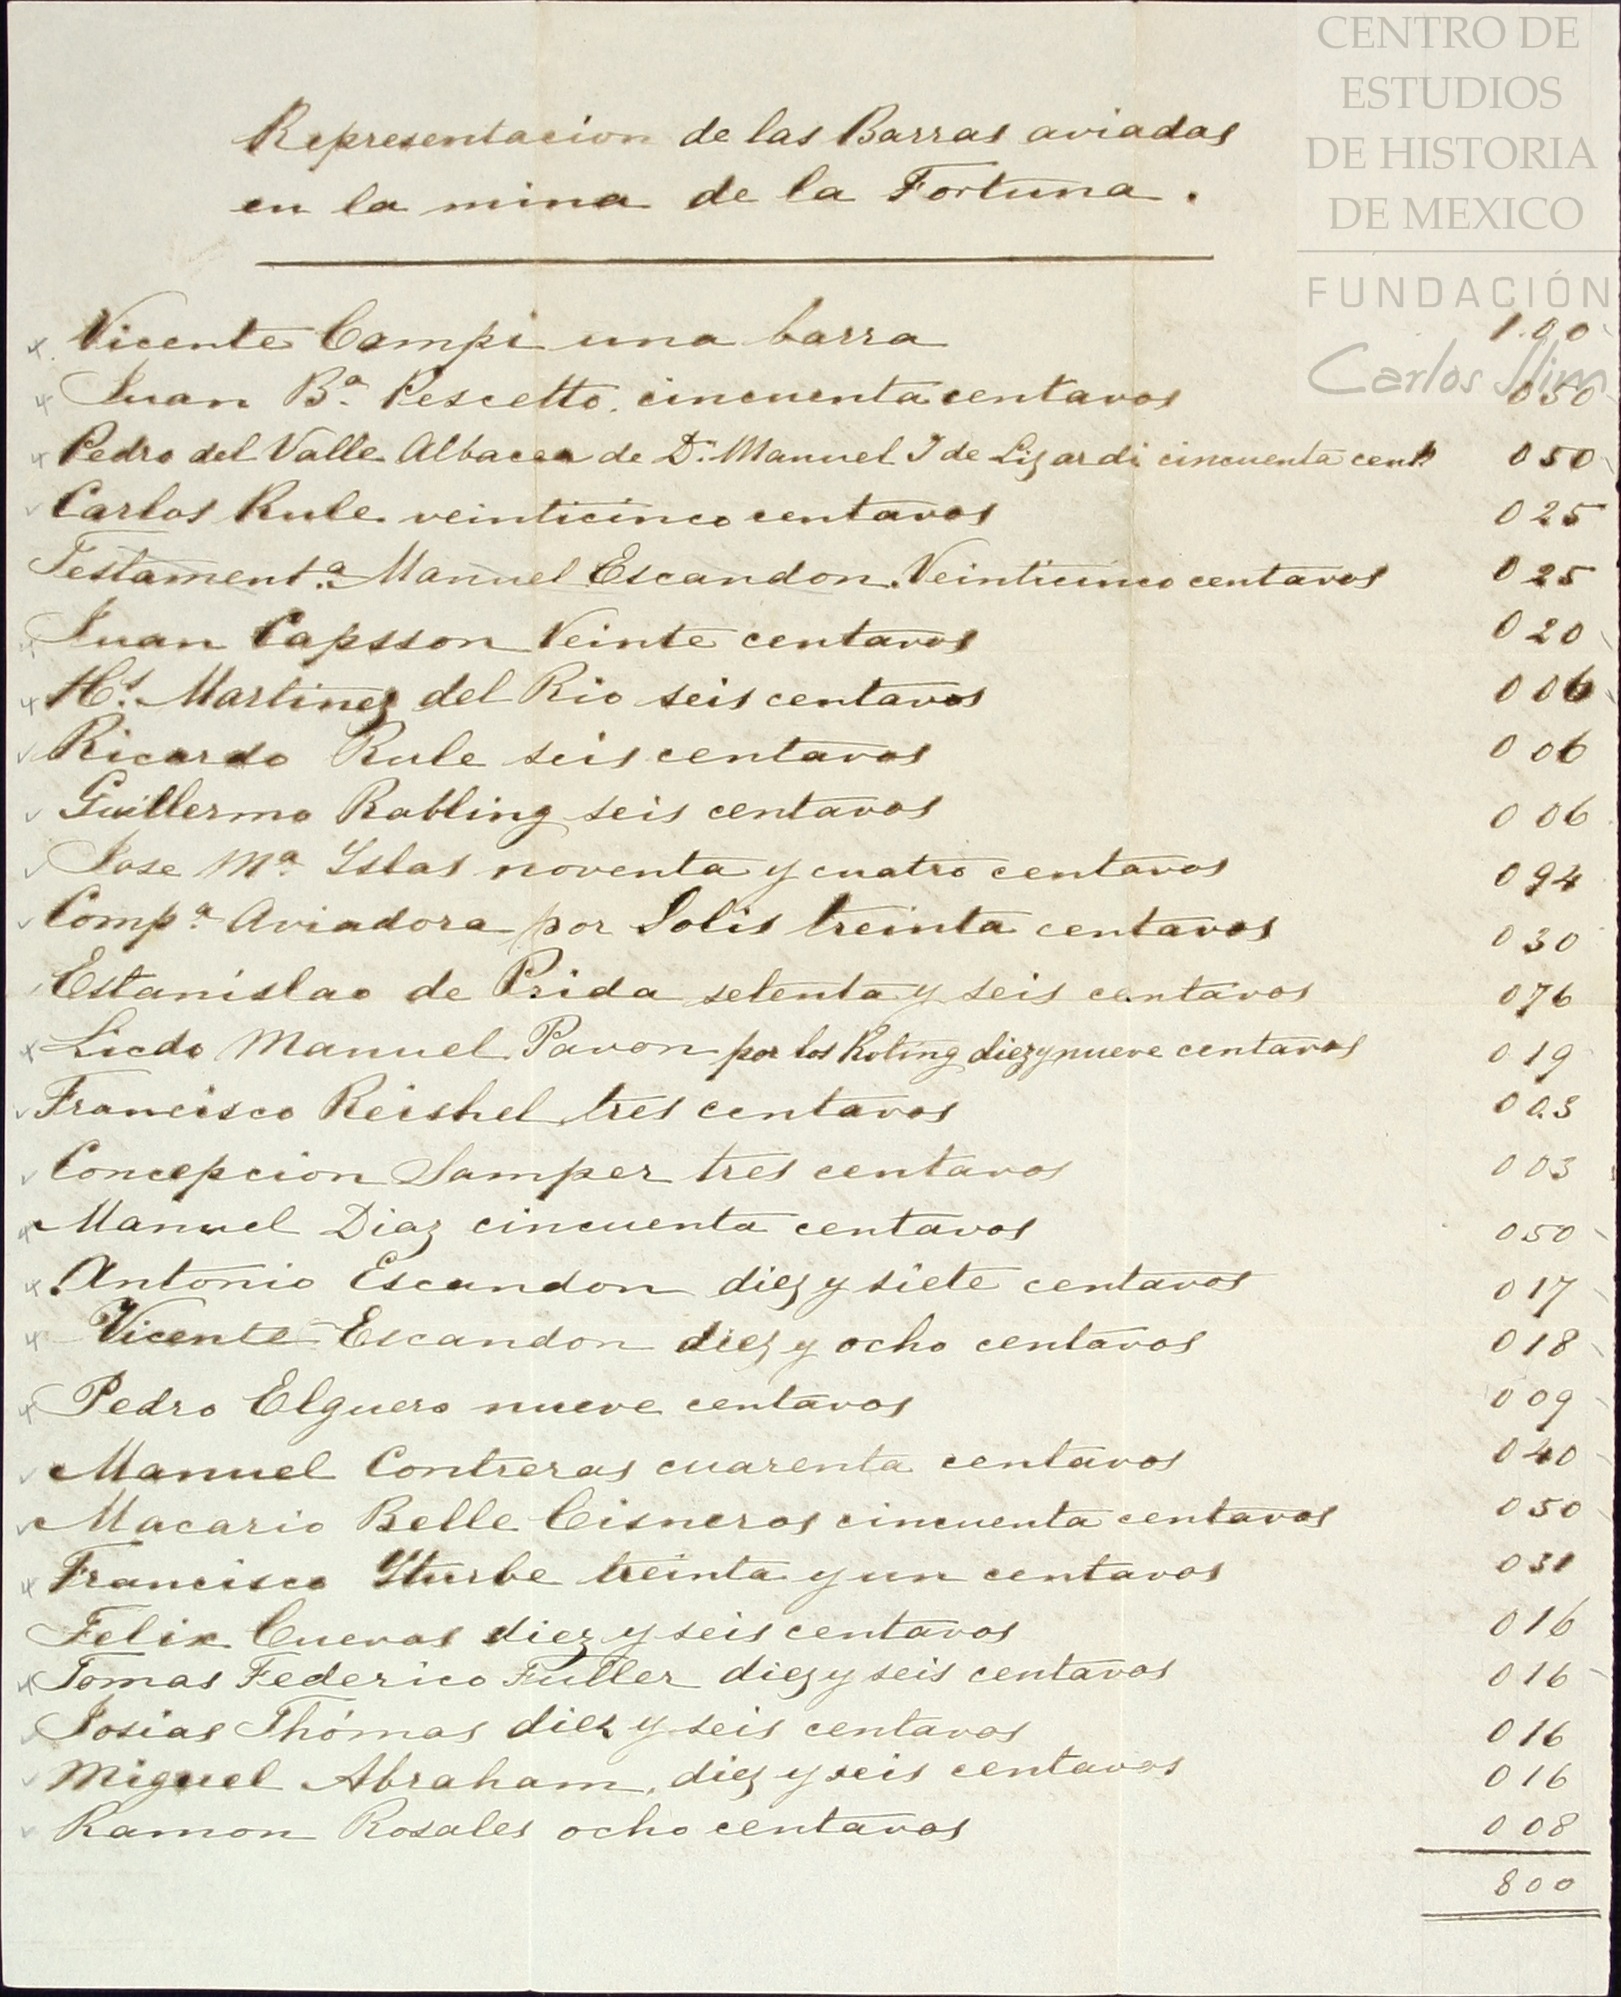 CENTRO DE
ESTUDIOS
DE HISTORIA
DE MEXICO
FUNDACIÓN
Carlos Slim
Representacion de las Barras aviadas
en la mina de la Fortuna.
Vicente Campi una barra 1.00
Juan Bª. Pescetto. cincuenta centavos 050
Pedro del Valle Albacea de Dn. Manuel J de Lizardi cincuenta cents 050
Carlos Rule veinticinco centavos 025
Testamentª. Manuel Escandon. Veinticinco centavos 025
Juan Capsson Veinte centavos 020
Hs. Martinez del Rio seis centavos 006
Ricardo Rule seis centavos 006
Guillermo Rabling seis centavos 006
Jose Mª Yslas noventa y cuatro centavos 094
Compª. Aviadora por Solis treinta centavos 030
Estanislao de Prida setenta y seis centavos 076
Licdo Manuel Pavon por los Roting diez y nueve centavos 019
Francisco Reishel tres centavos 003
Concepcion Samper tres centavos 003
Manuel Diaz cincuenta centavos 050
Antonio Escandon diez y siete centavos 017
Vicente Escandon diez y ocho centavos 018
Pedro Elguero nueve centavos 009
Manuel Contreras cuarenta centavos 040
Macario Belle Cisneros cincuenta centavos 050
Francisco Yturbe treinta y un centavos 031
Felix Cuevas diez y seis centavos 016
Tomas Federico Fuller diez y seis centavos 016
Josias Thómas diez y seis centavos 016
Miguel Abraham, diez y seis centavos 016
Ramon Rosales ocho centavos 008
800